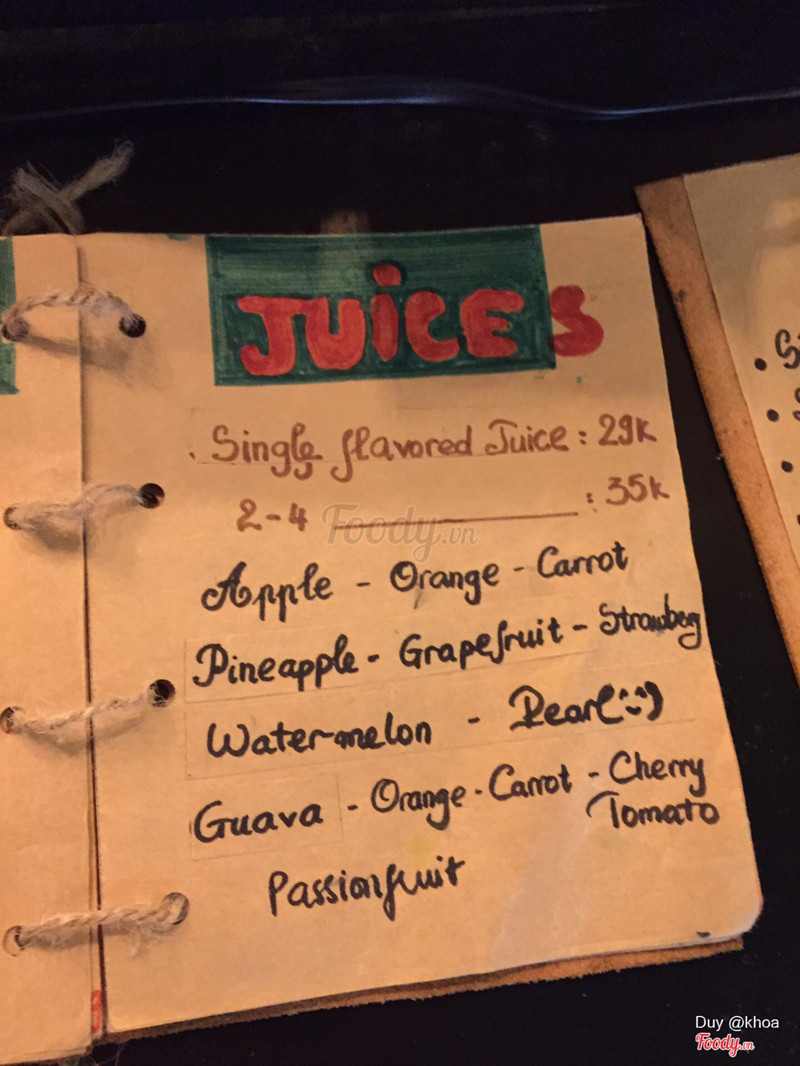 JUICES
Single flavored Juice : 29k
2-4 : 35k
Foody.vn
Apple - Orange - Carrot
Pineapple - Grapefruit - Strawbery
Watermelon - Pearl
Guava - Orange - Carrot - Cherry
Tomato
Passionfruit
Duy @khoa
Foody.vn